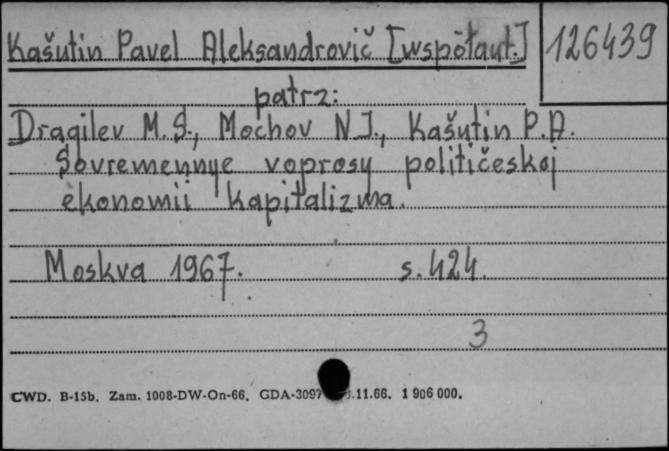 Kašutin Pavel Aleksandrovič [wspołaut.] 126439
patrz:
Dragilev M.S., Mochov N.I., Kašutin P.A.
Sovremennye voprosy političeskoj
ekonomii kapitalizma.
Moskva 1967. s. 424.
3
CWD. B-15b. Zam. 1008-DW-On-66. GDA-3097 .11.66. 1 906 000.